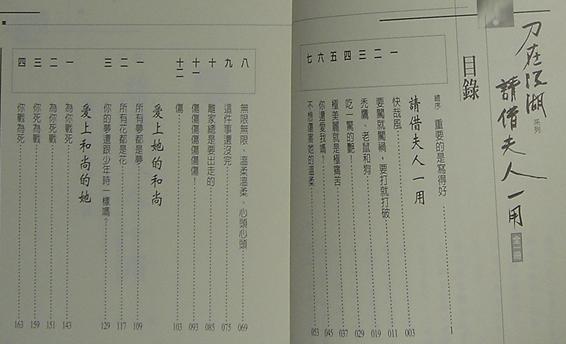 刀在江湖 系列
請借夫人一用
全一冊
目錄
總序 重要的是寫得好 1
請借夫人一用
一 快哉風 003
二 要闖就闖禍，要打就打破 011
三 禿鷹、老鼠和狗 019
四 吃一驚的艷！ 029
五 極美麗就是極痛苦 037
六 你還愛我嗎！ 045
七 不想傷害她的溫柔 053
八 無限無限，溫柔溫柔，心頭心頭 069
九 這件事還沒完 075
十 離家總是要出走的 085
十一 傷傷傷傷傷傷！ 093
十二 傷 103
愛上她的和尚
一 所有夢都是夢 109
二 所有花都是花 117
三 你的夢還跟少年時一樣嗎？ 129
愛上和尚的她
一 為你戰死 143
二 為你死戰 151
三 你死為戰 159
四 你戰為死 163